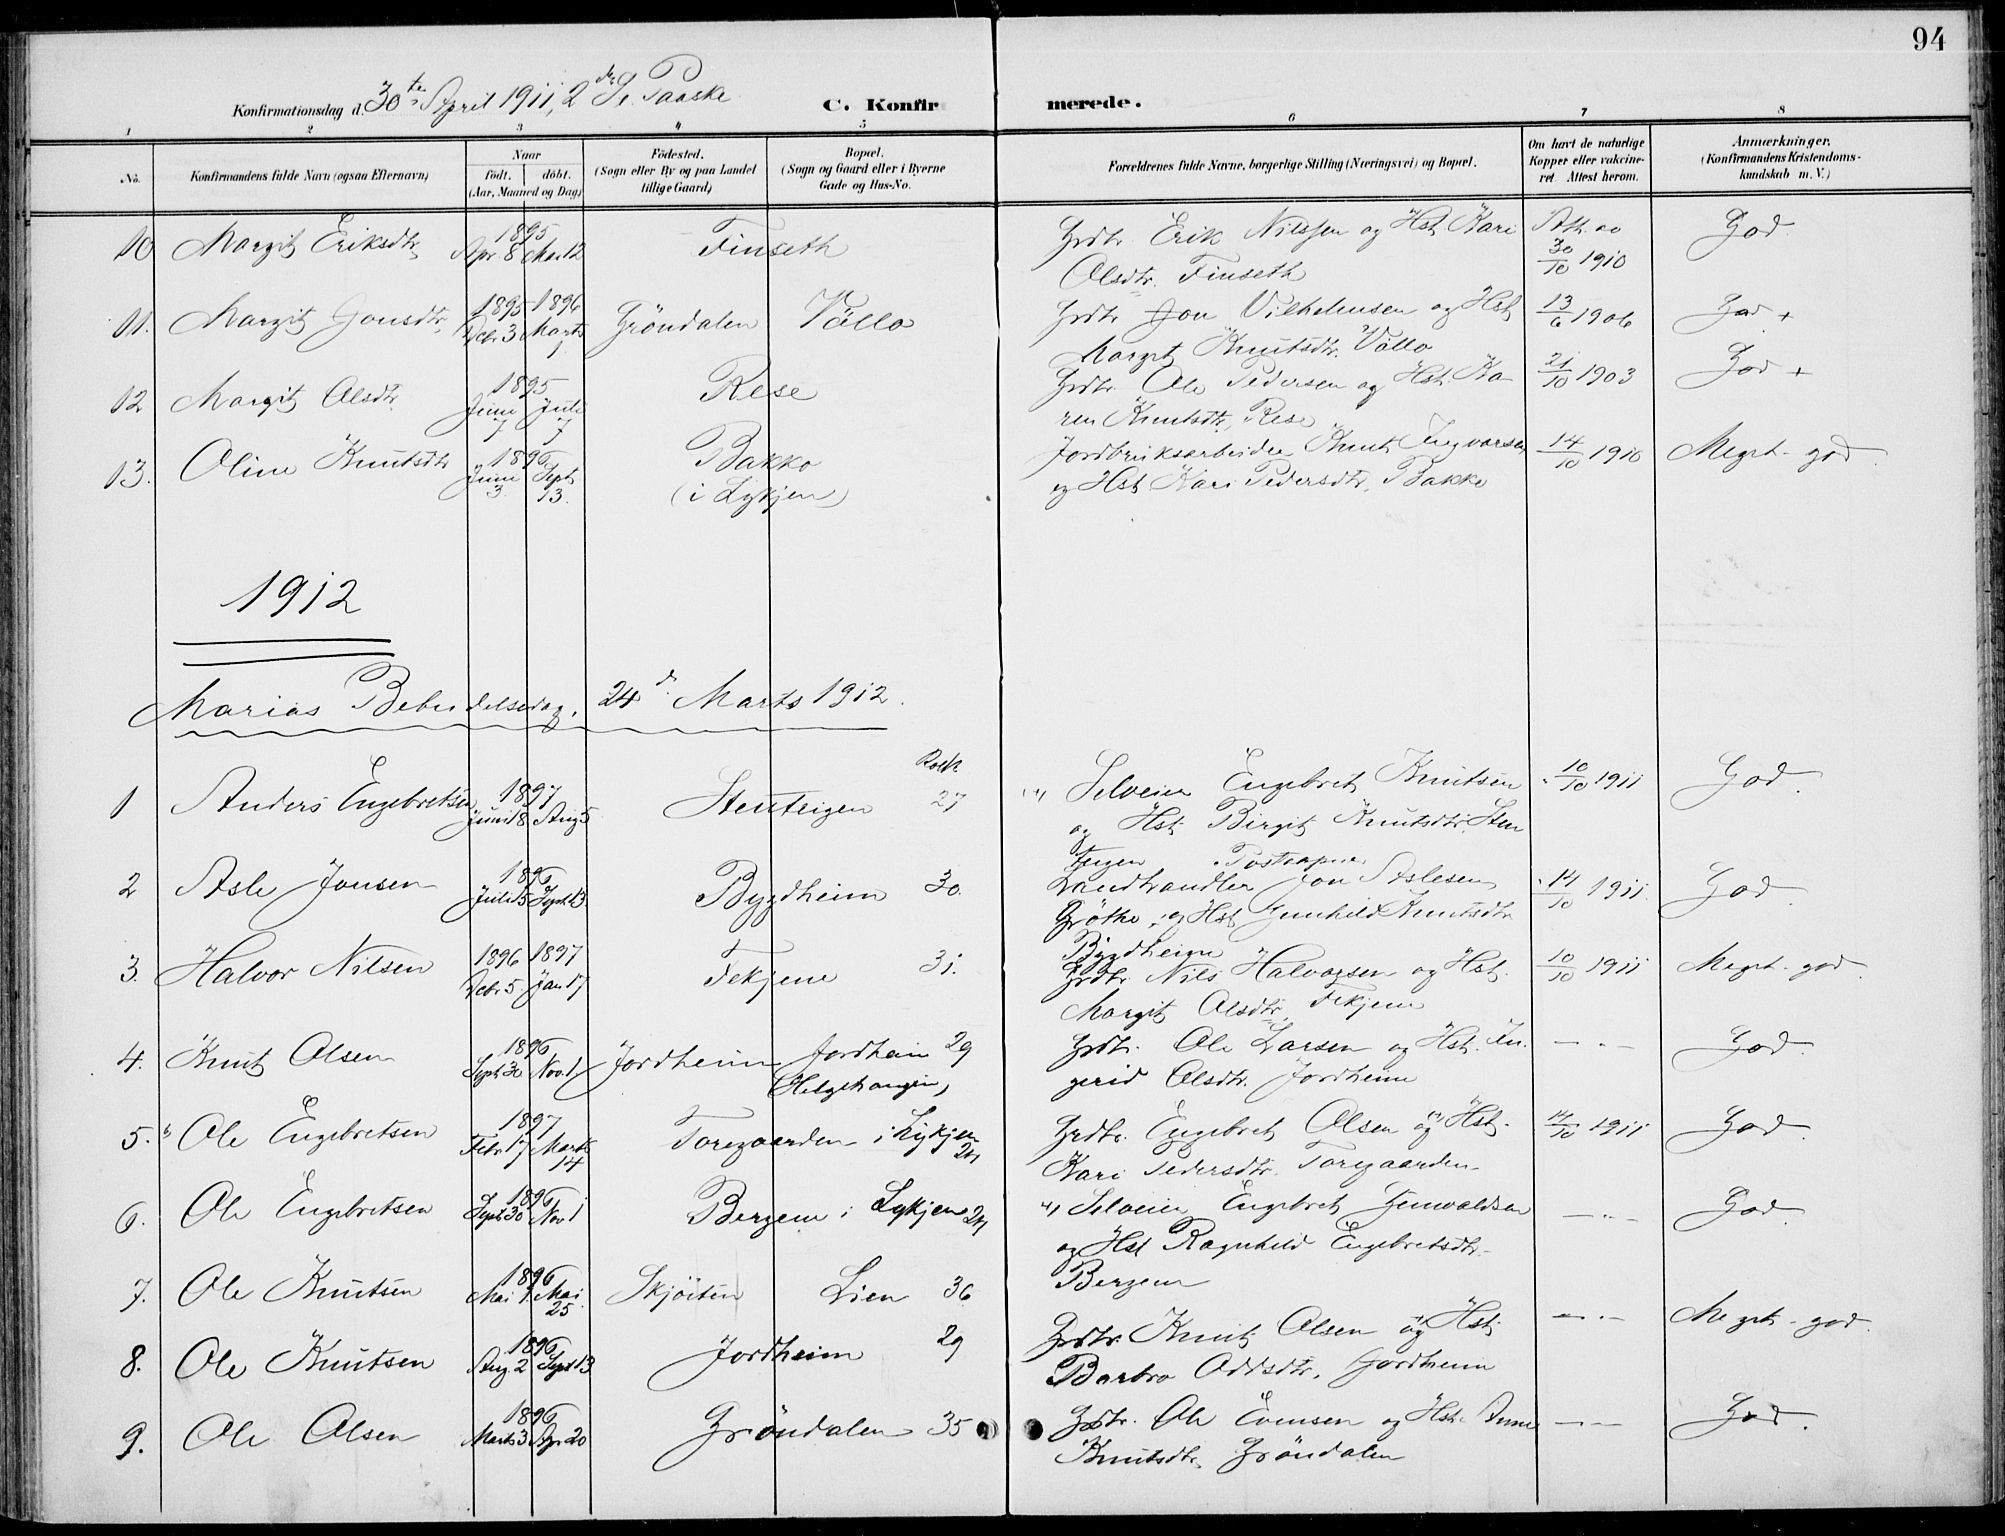 94
Konfirmationsdag d. 30te April 1911, 2den S. e. Paaske
C. Konfirmerede.
1 2 3 4 5 6 7 8
No. Konfirmandens fulde Navn (ogsaa Efternavn) Naar født. døbt. (Aar, Maaned og Dag) Fødested. (Sogn eller By og paa Landet tillige Gaard) Bopæl. (Sogn og Gaard eller i Byerne Gade og Hus-No. Forældrenes fulde Navne, borgerlige Stilling (Næringsvei) og Bopæl. Om havt de naturlige Kopper eller vakcineret. Attest herom. Anmerkninger. (Konfirmandens Kristendomskundskab m. V.)
10 Margit Eriksdtr. 1895 Apr. 8 Mai 12 Finseth Grdbr. Erik Nilssen og Hst. Kari God
Olsdtr. Finseth 30/10 1910
11. Margit Jonsdtr. 1895 1896 Decbr. 3 Marts 1 Gröndalen Völlo Grdbr. Jon Vilhelmsen og Hst. 13/6 1906 God +
Margit Knutsdtr. Völlo
12 Margit Olsdtr. 1895 Juni 7 Juli 7 Rese Grdbr. Ole Pedersen og Hst. Ka- 21/10 1903 God +
ren Knutsdtr. Rese
13. Oline Knutsdtr. 1896 Juni 3. Sept. 13. Bakko Jordbruksarbeider Knut Ingvarsen 14/10 1910 Meget god
(i Lykjen) og Hst. Kari Pedersdtr. Bakko
1912
Marias Bebudelsesdag. 24de Marts 1912.
Rode
1 Anders Engebretsen 1897 Juni 18 Aug 5 Stenteigen 27 Selveier Engebret Knutsen 10/10 1911 God.
og Hst. Birgit Knutsdtr. Sten
teigen
2 Asle Jonsen 1896 Juli 15 Sept. 13. Bygdheim 30. Landhandler Jon Aslesen 14/10 1911. God
Grøthe, og Hst. Gunhild Knutsdtr.
Bygdheim
3. Halvor Nilsen 1896 1897 Decbr 5. Jan 17 Tekjene 31. Grdbr. Nils Halvorsen og Hst. 10/10 1911 Meget god.
Margit Olsdtr. Tekjene
4. Knut Olsen 1896 Sept. 30 Nov. 1 Jordheim Jordheim 29 Grdbr. Ole Larsen og Hst. In- — " — God.
gerid Olsdtr. Jordheim
5. Ole Engebretsen 1897 Febr. 17 Marts 14 Toregaarden i Lykjen 24 Grdbr. Engebret Olsen og Hst. 14/10 1911 God.
Kari Pedersdtr. Toregaarden
6. Ole Engebretsen 1896 Sept. 30 Nov 1 Bergem i Lykjen 24 Selveier Engebret — " — God
og Hst Ragnhild Engebretsdtr.
Bergem
7. Ole Knutsen 1896 Mai 1. Mai 25 Skjöiten Lien 36
8. Ole Knutsen 1896 Aug. 2 Sept 13 Jordheim 29 Grdbr. Knut Olsen og Hst. — " — Meget god.
Barbro Oddsdtr. Jordheim
9. Ole Olsen 1896 Marts 3 Apr 20 Gröndalen 35 Grdbr. Ole Evensen og Hst. Anne — " — God.
Knutsdtr. Gröndalen